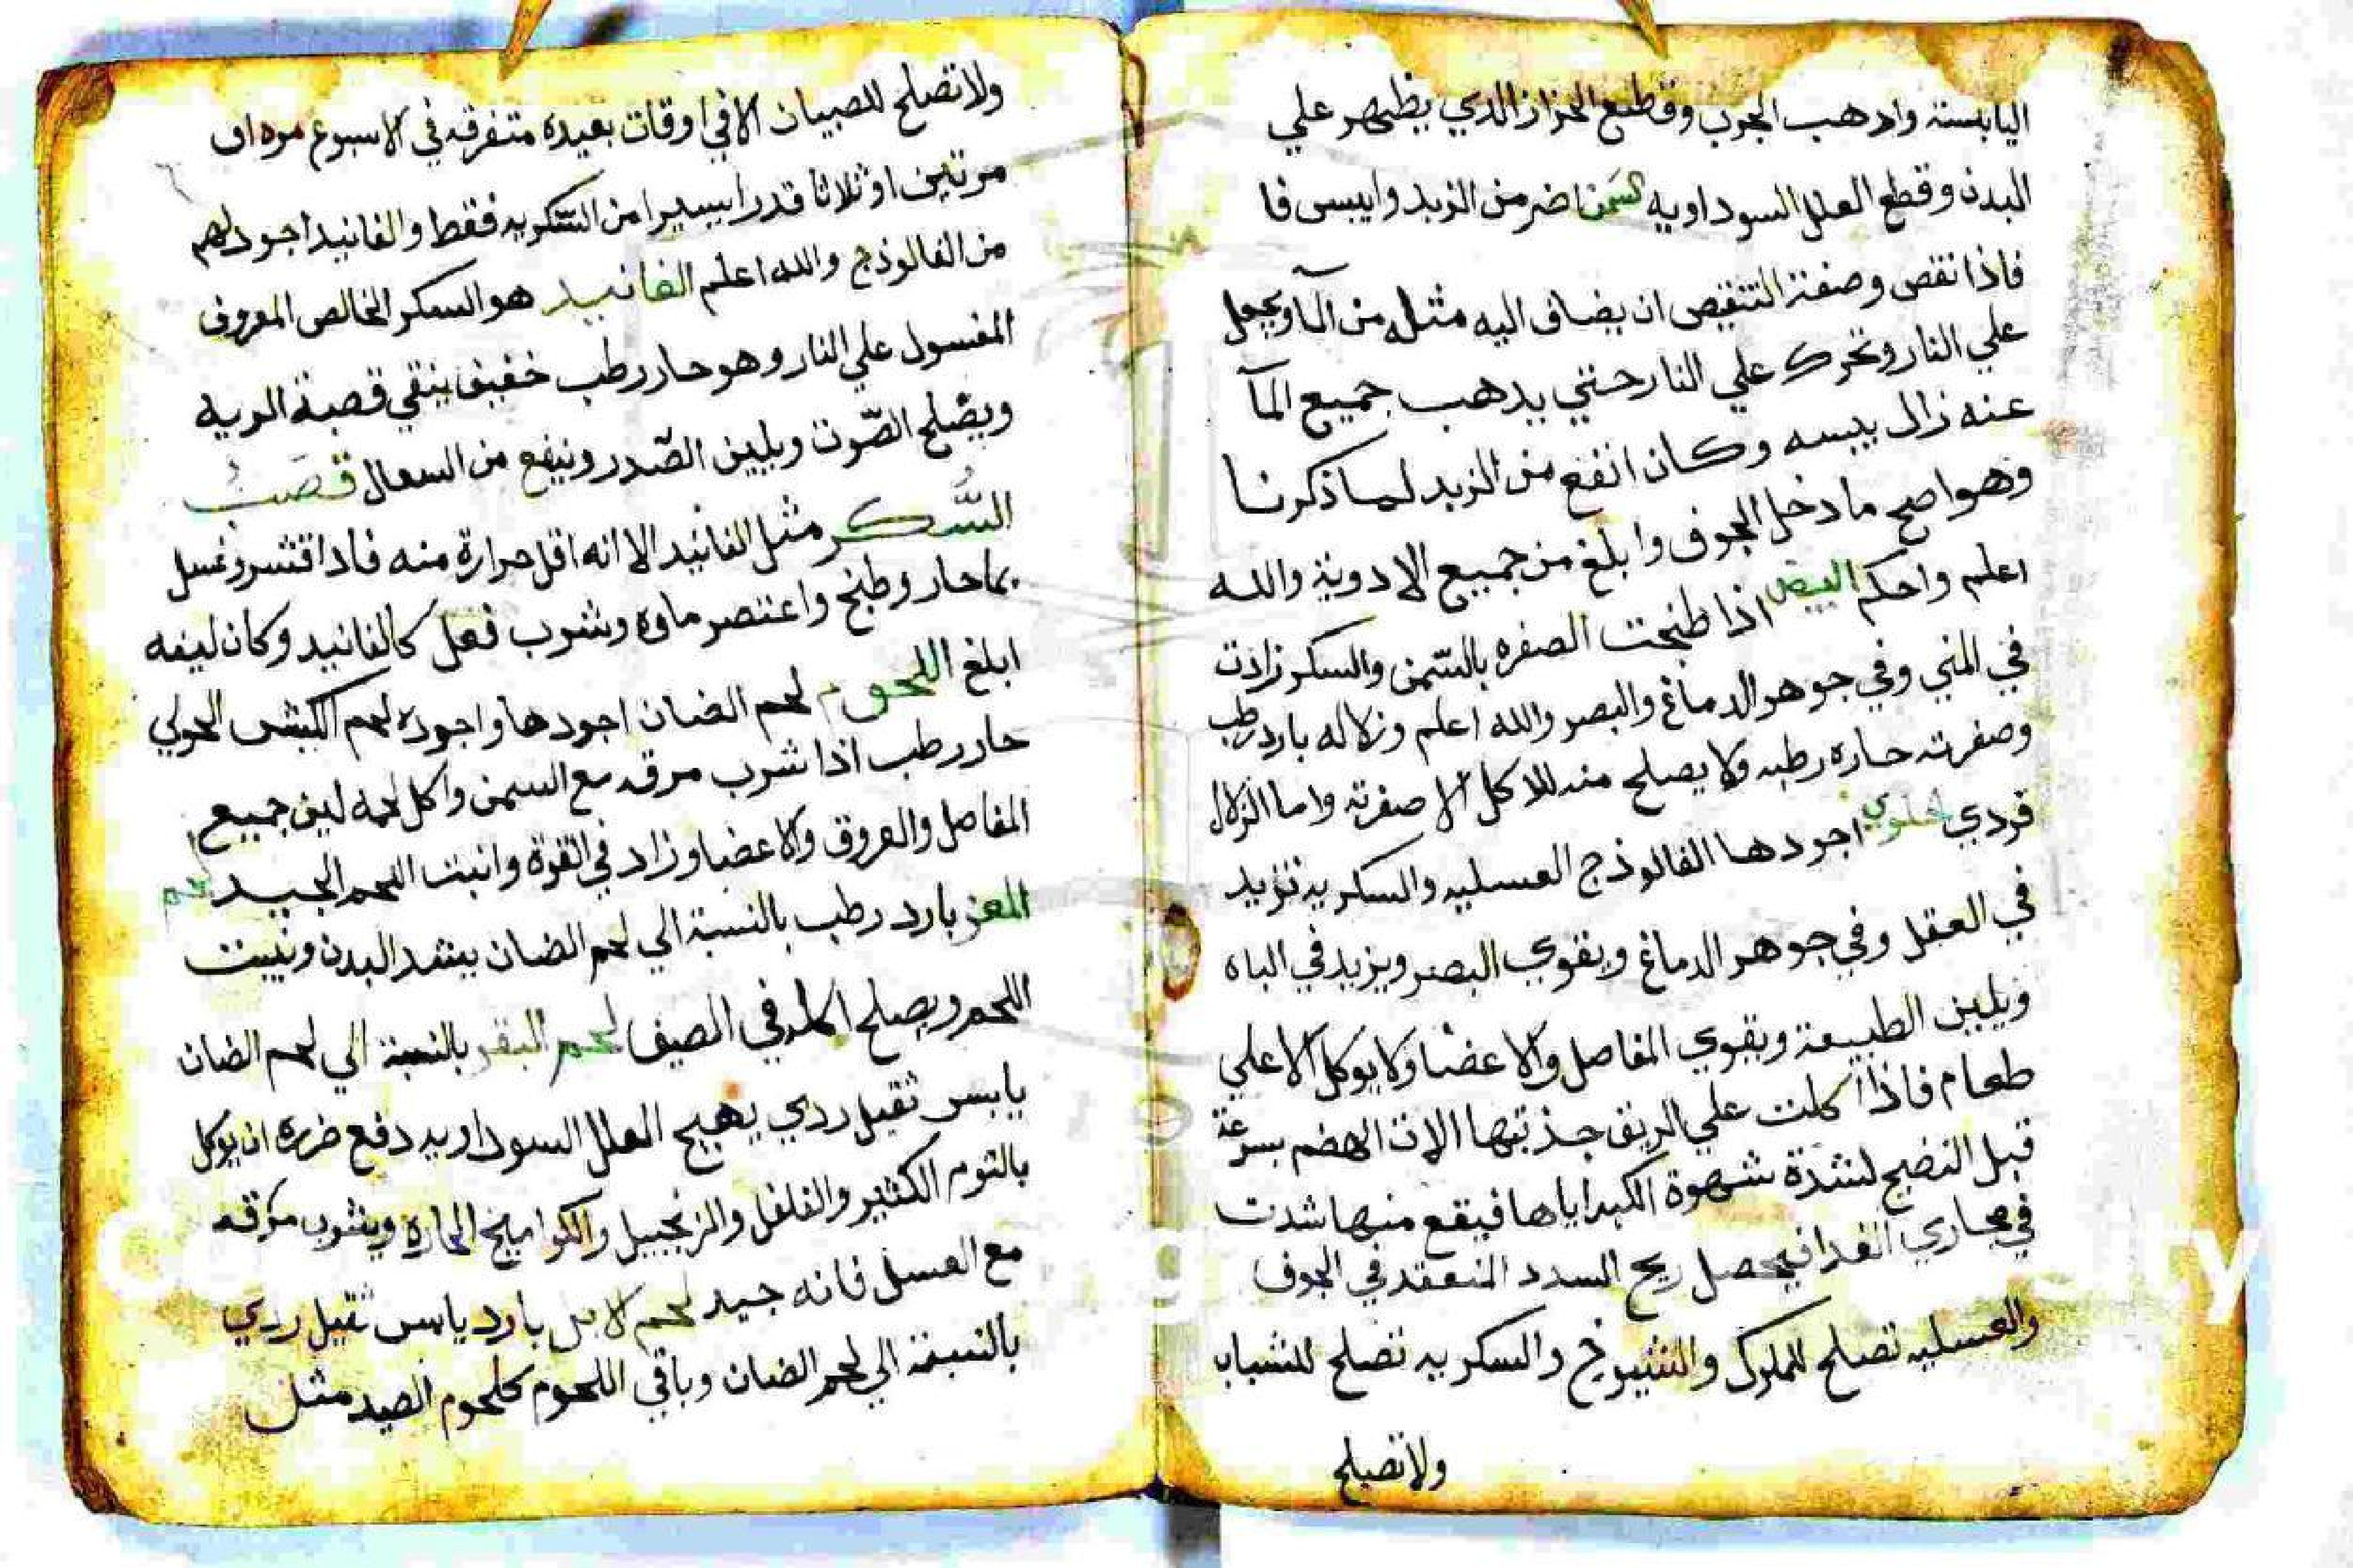 اليابسة واذهب الجرب وقطع الحزاز الذي يظهر علي
البدن وقطع العلل السوداويه السمن اضر من الزبد وايبس فا
فاذا نقص وصفة التنقيص ان يضاف اليه مثله من المآ ويجعل
علي النار وتحرك علي النار حتي يدهب جميع المآ
عنه زال يبسه وكان انفع من الزبد لما ذكرنا
وهو اصح ما دخل الجوف وابلغ من جميع الادوية والله
اعلم واحكم البيض اذا طبخت الصفره بالسمن والسكر زادت
في المني وفي جوهر الدماغ والبصر والله اعلم وزلاله بارد رطب
وصفرته حاره رطبه ولا يصلح منه للاكل الا صفرته واما الزلال
فردي الحلوي اجودها الفالوذج العسليه والسكريه تزيد
في العقل وفي جوهر الدماغ ويقوي البصر ويزيد في الباه
ويلين الطبيعة ويقوي المفاصل والاعضا ولا يوكل الا علي
طعام فاذا اكلت علي الريق جذبتها الات الهضم بسرعة
قبل النضيج لشدة شهوة الكبد اياها فيقع منها شدت
في مجاري الغدا فيحصل ريح السدد المنعقد في الجوف
والعسليه تصلح للملوك والشيوخ والسكريه تصلح للشباب
ولا تصلح
ولا تصلح للصبيان الا في اوقات بعيده متفرقه في الاسبوع مره او
مرتين او ثلاثا قدرا يسيرا من السكريه فقط والفانيد اجود لهم
من الفالوذج والله اعلم الفانيد هو السكر الخالص المعروف
المغسول علي النار وهو حار رطب خفيف ينقي قصبة الريه
ويصلح الصوت ويلين الصدر وينفع من السعال قصب
السكر مثل الفانيد الا انه اقل حرارة منه فاذا قشر وغسل
بما حار وطبخ واعتصر ماوه وشرب فعل كالفانيد وكان ليفه
ابلغ اللحوم لحم الضان اجودها واجوده لحم الكبش الحولي
حار رطب اذا شرب مرقه مع السمن واكل لحمه لين جميع
المفاصل والعروق والاعضا وزاد في القوة وانبت اللحم الجيد لحم
المعز بارد رطب بالنسبة الي لحم الضان يشد البدن وينبت
اللحم ويصلح اكله في الصيف لحم البقر بالنسبة الي لحم الضان
يابس ثقيل ردي يهيج العلل السوداويه دفع ضرره ان يوكل
بالثوم الكثير والفلفل والزنجبيل والكواميخ الحاره ويشرب مرقه
مع العسل فانه جيد لحم الابل بارد يابس ثقيل ردي
بالنسبة الي لحم الضان وباقي اللحوم كلحوم الصيد مثل